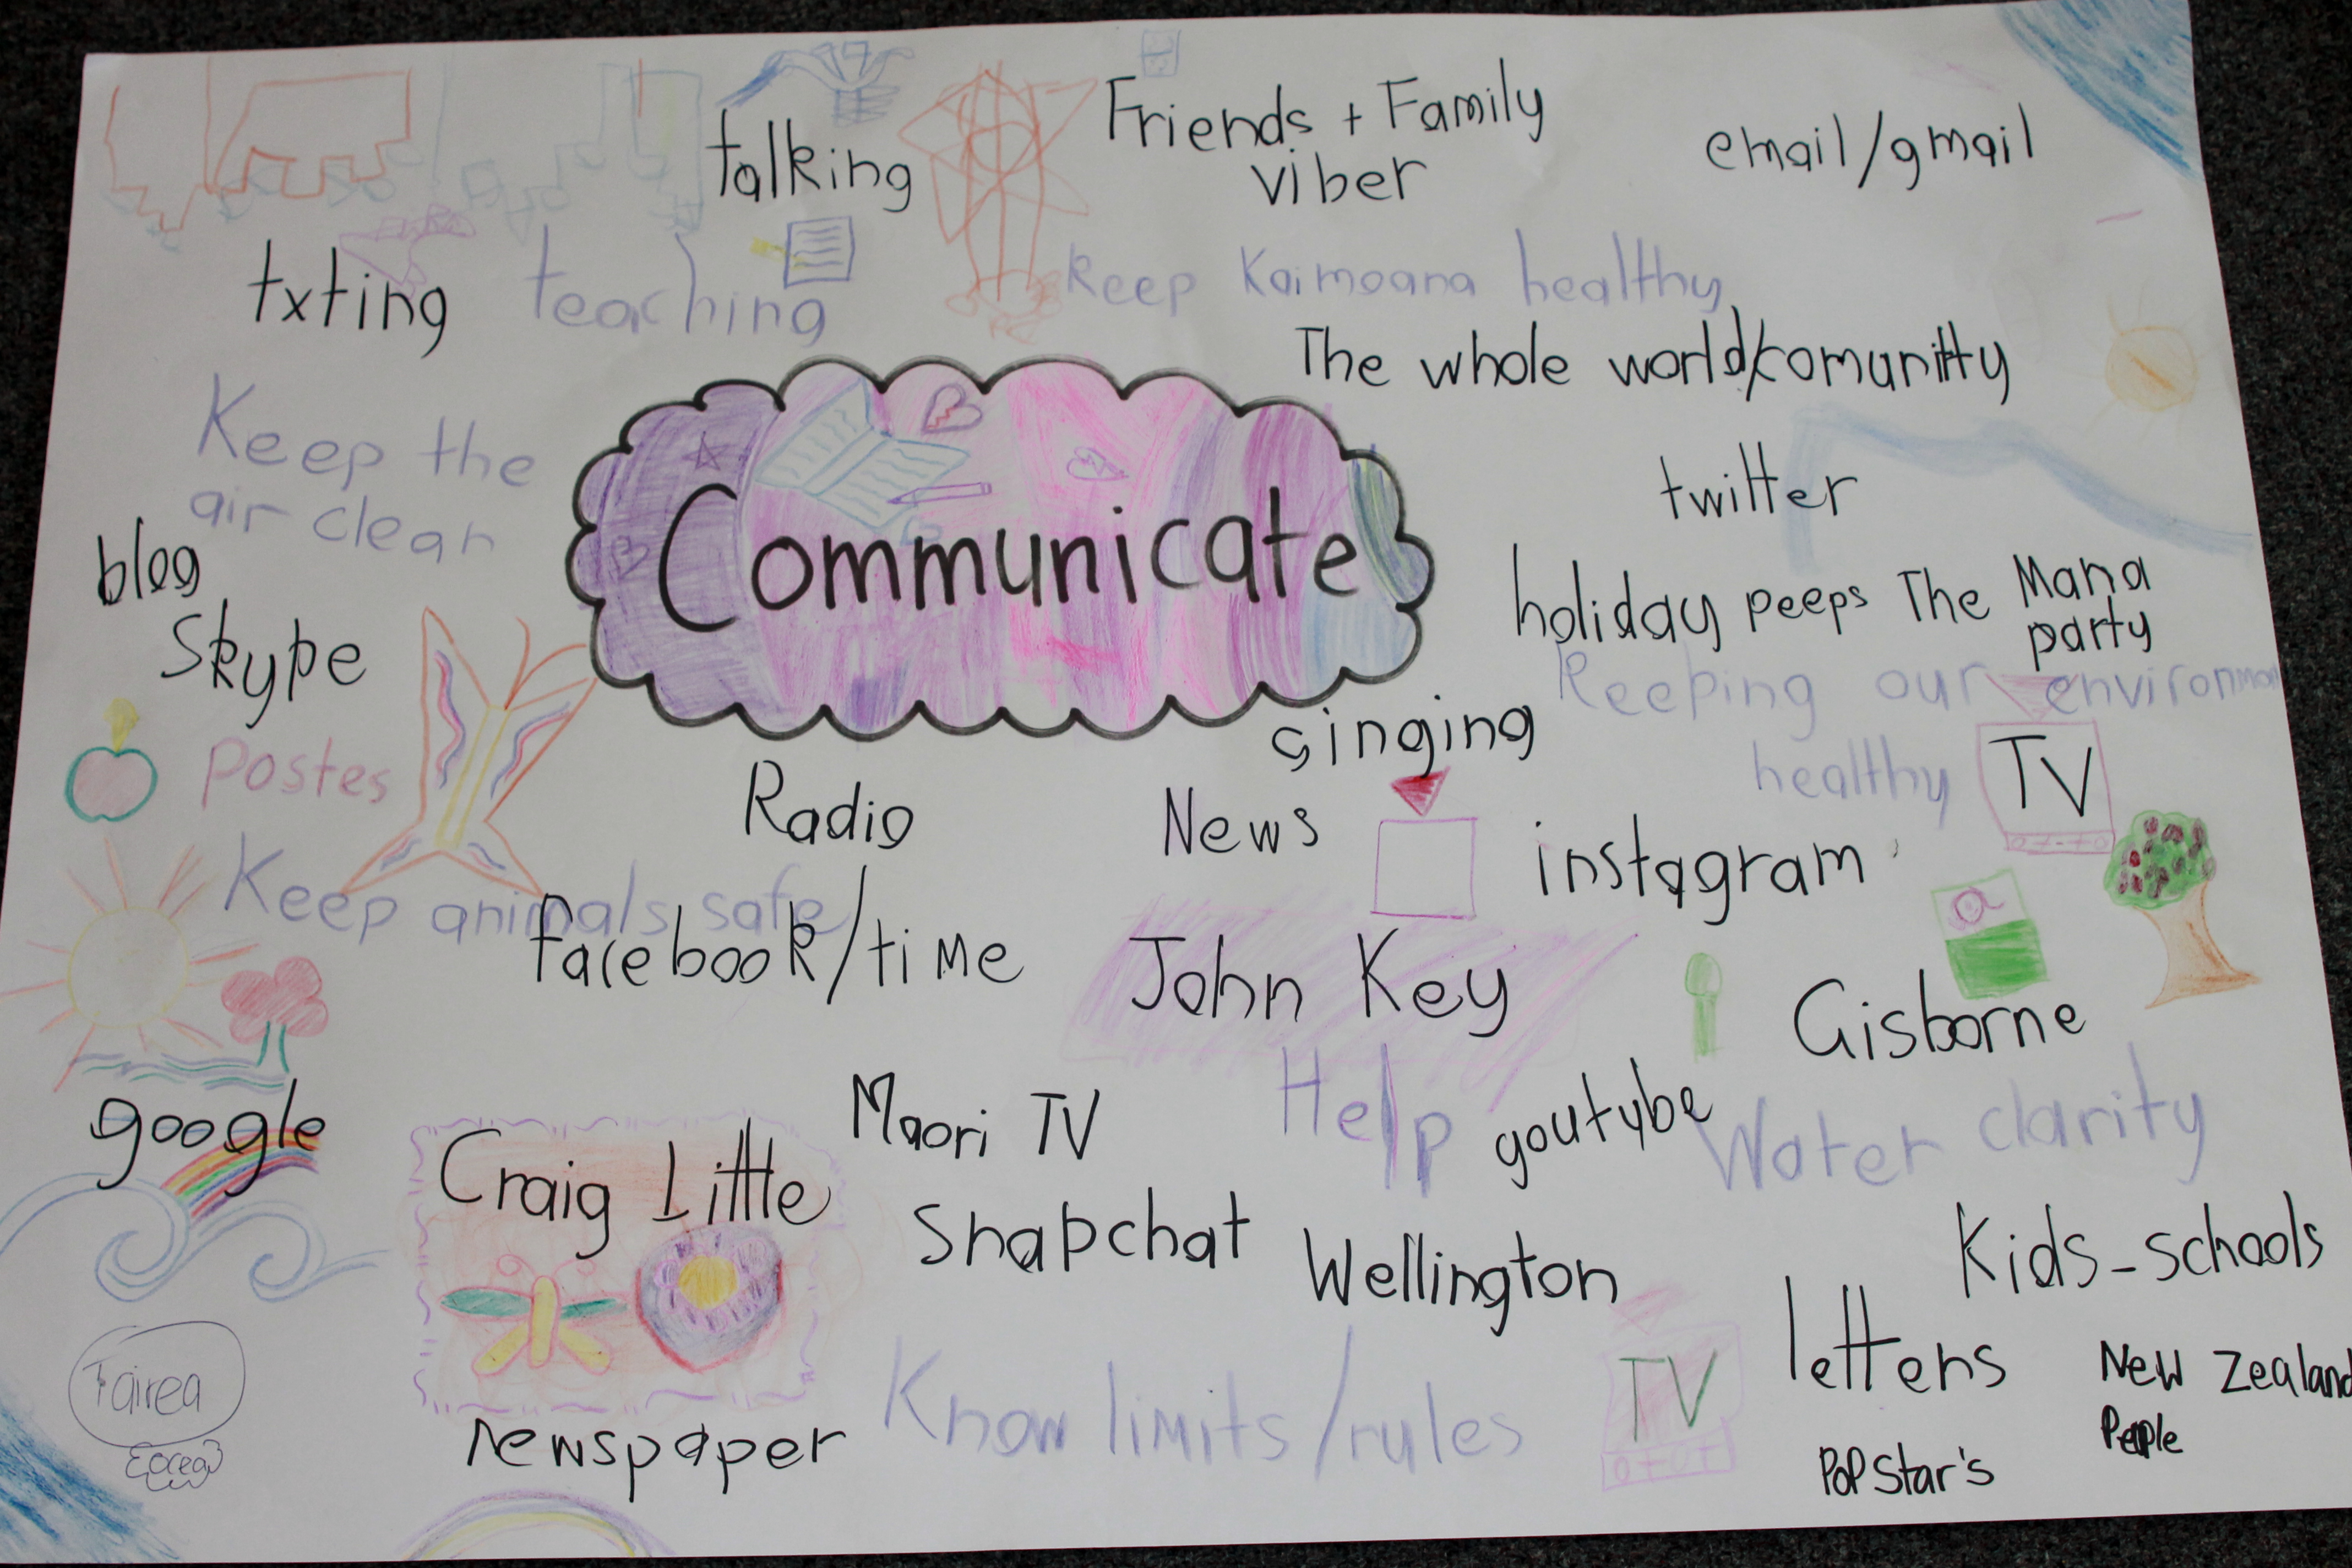 talking
Friends + Family
viber
email/gmail
txting
teaching
Keep Kaimoana healthy
The whole world/comunitty
Keep the
air clean
twitter
blog
Communicate
holiday peeps
The Mana
party
Skype
Keeping our environmen
healthy
singing
TV
Postes
Radio
News
instagram
Keep animals safe
facebook/time
John Key
Gisborne
google
Craig Little
Maori TV
Help
youtybe
Water clarity
Snapchat
Wellington
Kids-schools
Tairea
Know limits/rules
TV
letters
New Zealand
People
newspaper
PoPStar's